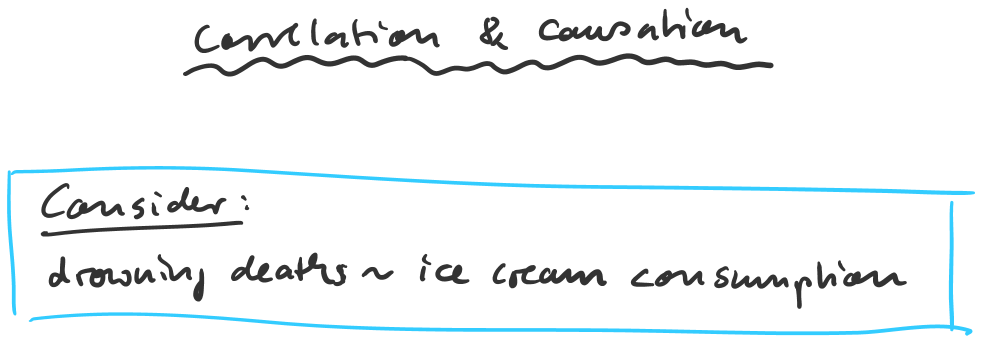 Correlation & Causation
Consider:
drowning deaths ~ ice cream consumption